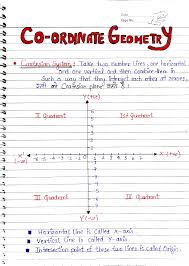 Date
Page No.
CO-ORDINATE GEOMETRY
Cartesian System : Take two number lines, one horizontal
and one vertical and then combine them in
Such a way that they intersect each other at zeros.
Cartesian plane
Y (+ve)
II Quadrant
Ist Quadrant
X (-ve)
X (+ve)
III Quadrant
IV Quadrant
Y (-ve)
Horizontal Line is called X-axis
Vertical Line is called Y-axis.
Intersection point of these two Lines is called Origin.